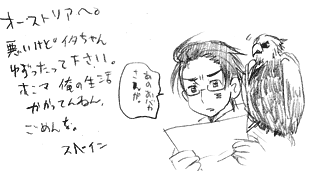 オーストリアへ。
悪いけどイタちゃん
ゆずったって下さい。
ホンマ俺の生活
かかってんねん。
ごめんな。
スペイン
あのおバカ
さんが。